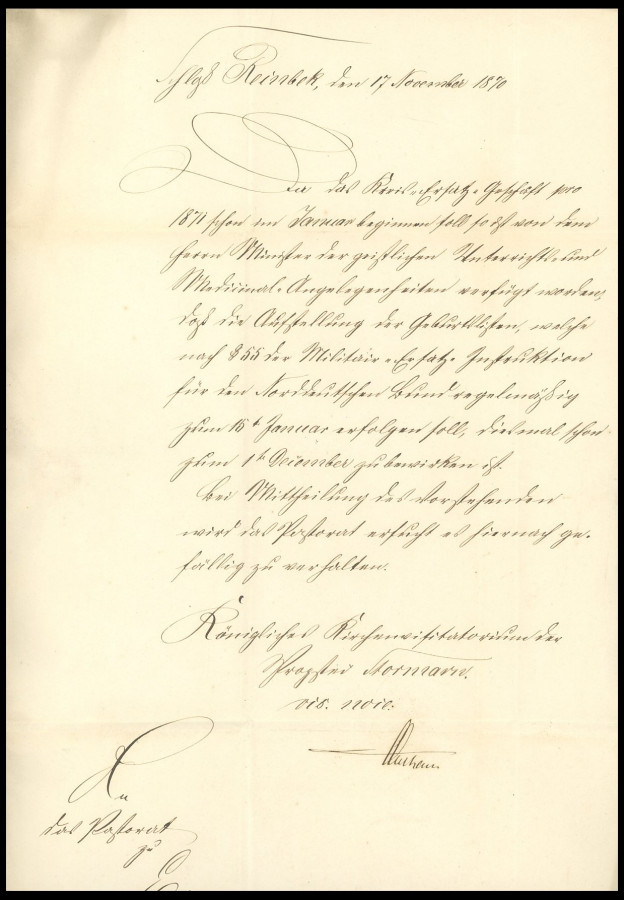 Schloß Reinbek, den 17 November 1870
Da das Kreis-Ersatz-Geschäft pro
1871 schon im Januar beginnen soll so ist von dem
Herrn Minister der geistlichen Unterrichts- und
Medicinal-Angelegenheiten verfügt worden,
daß die Aufstellung der Geburtslisten, welche
nach § 55 der Militair-Ersatz-Instruktion
für den Norddeutschen Bund regelmäßig
zum 15t Januar erfolgen soll, diesmal schon
zum 1ten December zu bewirken ist.
Bei Mittheilung des Vorstehenden
wird das Pastorat ersucht es hiernach ge-
fällig zu verhalten.
Königliches Kirchenvisitatorium der
Propstei Stormarn.
vis. noie.
An
das Pastorat
zu